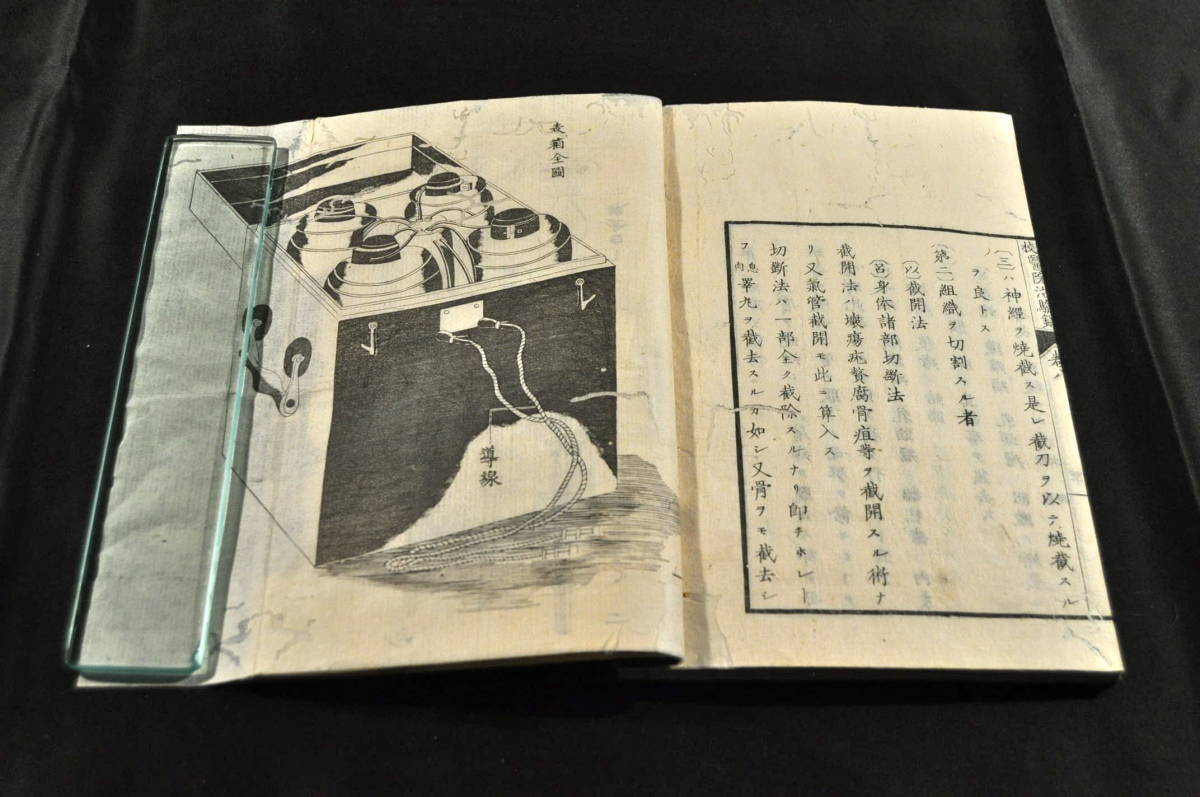 校醫院治驗錄
卷ノ
(三)ハ神經ヲ燒截ス是レ截刀ヲ以テ燒截スル
ヲ良トス
(第二)組織ヲ切割スル者
(以)截開法
(呂)身体諸部切斷法
截開法ハ壞瘍疣贅腐骨疽等ヲ截開スル術ナ
リ又氣管截開モ此ニ算入ス
切斷法ハ一部全ク截除スルナリ即チホレー
フ息肉睪丸ヲ截去スルカ如シ又骨ヲモ截去シ
表箱全圖
導線
二